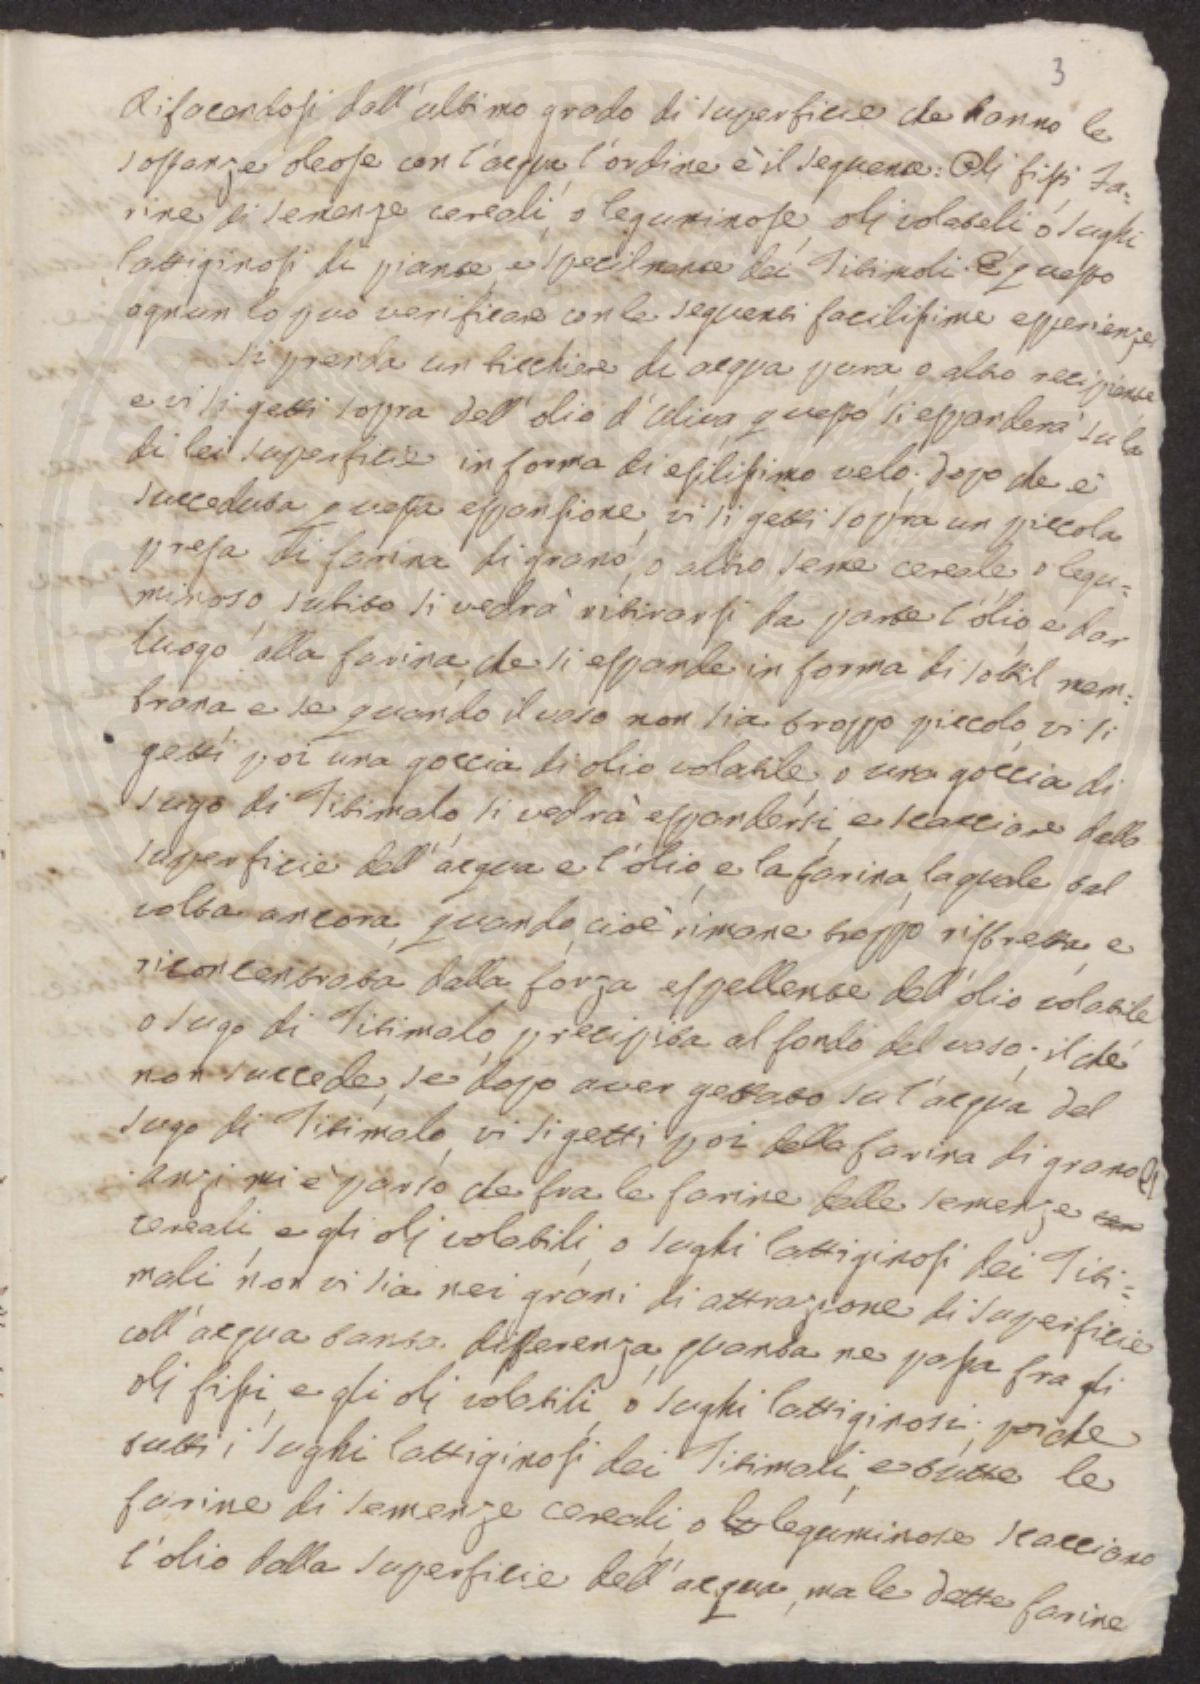 3
Rifacendosi dall'ultimo grado di superficie che hanno le
sostanze oleose con l'acqua l'ordine è il seguente: Olj fissi, Fa-
rine di semenze cereali, o leguminose, olj volatili o sughi
lattiginosi di piante, e specilmente dei Titimali. E questo
ognun lo può verificare con le seguenti facilissime esperienze
Si prenda un bicchiere di acqua pura, o altro recipiente
e vi si getti sopra dell'olio d'Uliva, questo si espanderà su la
di lei superficie in forma di esilissimo velo; dopo che è
succeduta questa espansione, vi si getti sopra un piccola
presa di farina di grano, o altro seme cereale, o legu-
minoso, subito si vedrà ritirarsi da parte l'olio, e dar
luogo alla farina, che si espande in forma di sottil mem-
brana e se quando il vaso non sia troppo piccolo, vi si
getti poi una goccia di olio volatile, o una goccia di
sugo di Titimalo, si vedrà espandersi, e scacciare dalla
superficie dell'acqua e l'olio, e la farina, la quale tal
volta ancora, quando cioè rimane troppo ristretta, e
riconcentrata dalla forza espellente dell'olio volatile
o sugo di Titimalo, precipita al fondo del vaso; il che
non succede, se dopo aver gettato su l'acqua del
sugo di Titimalo, vi si getti poi della farina di grano
anzi mi è parso che fra le farine delle semenze
cereali e gli olj volatili, o sughi lattiginosi dei Titi-
mali non vi sia nei grani di attrazione di superficie
coll'acqua tanta differenza, quanta ne passa fra gli
olj fissi, e gli olj volatili, o sughi lattiginosi; poiche
tutti i sughi lattiginosi dei Titimali, e tutte le
farine di semenze cereali, o leguminose scacciano
l'olio dalla superficie dell'acqua, ma le dette farine